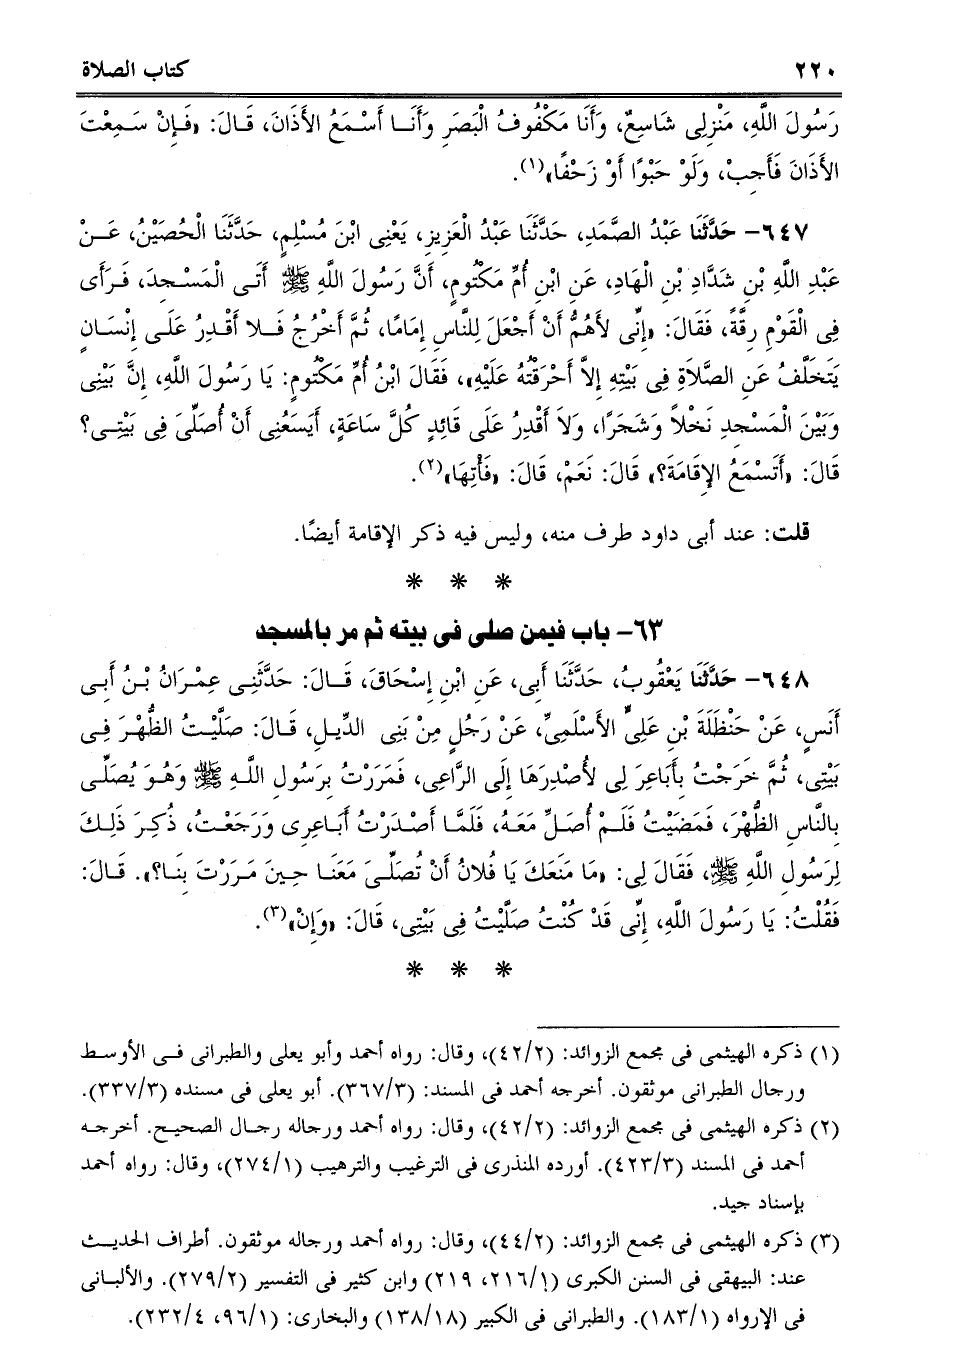 ٢٢٠ كتاب الصلاة
رَسُولَ اللَّهِ، مَنْزِلِى شَاسِعٌ، وَأَنَا مَكْفُوفُ الْبَصَرِ وَأَنَا أَسْمَعُ الأَذَانَ، قَالَ: «فَإِنْ سَمِعْتَ
الأَذَانَ فَأَجِبْ، وَلَوْ حَبْوًا أَوْ زَحْفًا»(١).
٦٤٧- حَدَّثَنَا عَبْدُ الصَّمَدِ، حَدَّثَنَا عَبْدُ الْعَزِيزِ، يَعْنِى ابْنَ مُسْلِمٍ، حَدَّثَنَا الْحُصَيْنُ، عَنْ
عَبْدِ اللَّهِ بْنِ شَدَّادِ بْنِ الْهَادِ، عَنِ ابْنِ أُمِّ مَكْتُومٍ، أَنَّ رَسُولَ اللَّهِ ﷺ أَتَى الْمَسْجِدَ، فَرَأَى
فِى الْقَوْمِ رِقَّةً، فَقَالَ: «إِنِّى لأَهُمُّ أَنْ أَجْعَلَ لِلنَّاسِ إِمَامًا، ثُمَّ أَخْرُجُ فَلا أَقْدِرُ عَلَى إِنْسَانٍ
يَتَخَلَّفُ عَنِ الصَّلاَةِ فِى بَيْتِهِ إِلاَّ أَحْرَقْتُهُ عَلَيْهِ»، فَقَالَ ابْنُ أُمِّ مَكْتُومٍ: يَا رَسُولَ اللَّهِ، إِنَّ بَيْنِى
وَبَيْنَ الْمَسْجِدِ نَخْلاً وَشَجَرًا، وَلاَ أَقْدِرُ عَلَى قَائِدٍ كُلَّ سَاعَةٍ، أَيَسَعُنِى أَنْ أُصَلِّىَ فِى بَيْتِى؟
قَالَ: «أَتَسْمَعُ الإِقَامَةَ؟» قَالَ: نَعَمْ، قَالَ: «فَأْتِهَا»(٢).
قلت: عند أبى داود طرف منه، وليس فيه ذكر الإقامة أيضًا.
* * *
٦٣- باب فيمن صلى فى بيته ثم مر بالمسجد
٦٤٨- حَدَّثَنَا يَعْقُوبُ، حَدَّثَنَا أَبِى، عَنِ ابْنِ إِسْحَاقَ، قَالَ: حَدَّثَنِى عِمْرَانُ بْنُ أَبِى
أَنَسٍ، عَنْ حَنْظَلَةَ بْنِ عَلِىٍّ الأَسْلَمِىِّ، عَنْ رَجُلٍ مِنْ بَنِى الدِّيلِ، قَالَ: صَلَّيْتُ الظُّهْرَ فِى
بَيْتِى، ثُمَّ خَرَجْتُ بِأَبَاعِرَ لِى لأُصْدِرَهَا إِلَى الرَّاعِى، فَمَرَرْتُ بِرَسُولِ اللَّهِ ﷺ وَهُوَ يُصَلِّى
بِالنَّاسِ الظُّهْرَ، فَمَضَيْتُ فَلَمْ أُصَلِّ مَعَهُ، فَلَمَّا أَصْدَرْتُ أَبَاعِرِى وَرَجَعْتُ، ذُكِرَ ذَلِكَ
لِرَسُولِ اللَّهِ ﷺ، فَقَالَ لِى: «مَا مَنَعَكَ يَا فُلانُ أَنْ تُصَلِّىَ مَعَنَا حِينَ مَرَرْتَ بِنَا؟». قَالَ:
فَقُلْتُ: يَا رَسُولَ اللَّهِ، إِنِّى قَدْ كُنْتُ صَلَّيْتُ فِى بَيْتِى، قَالَ: «وَإِنْ»(٣).
* * *
(١) ذكره الهيثمى فى مجمع الزوائد: (٤٢/٢)، وقال: رواه أحمد وأبو يعلى والطبرانى فى الأوسط
ورجال الطبرانى موثقون. أخرجه أحمد فى المسند: (٣٦٧/٣). أبو يعلى فى مسنده (٣٣٧/٣).
(٢) ذكره الهيثمى فى مجمع الزوائد: (٤٢/٢)، وقال: رواه أحمد ورجاله رجال الصحيح. أخرجه
أحمد فى المسند (٤٢٣/٣). أورده المنذرى فى الترغيب والترهيب (٢٧٤/١)، وقال: رواه أحمد
بإسناد جيد.
(٣) ذكره الهيثمى فى مجمع الزوائد: (٤٤/٢)، وقال: رواه أحمد ورجاله موثقون. أطراف الحديث
عند: البيهقى فى السنن الكبرى (٢١٦/١، ٢١٩) وابن كثير فى التفسير (٢٧٩/٢). والألبانى
فى الإرواه (١٨٣/١). والطبرانى فى الكبير (١٣٨/١٨) والبخارى: (٩٦/١، ٢٣٢/٤).